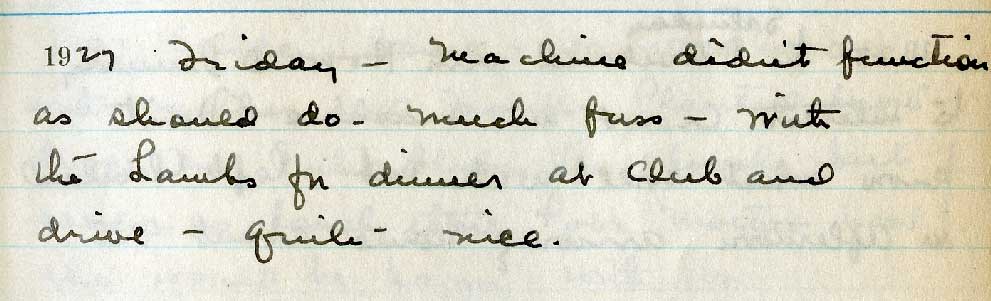 1927 Friday - Machine didn't function
as should do - Much fuss - With
the Lambs for dinner at Club and
drive - Quite nice.